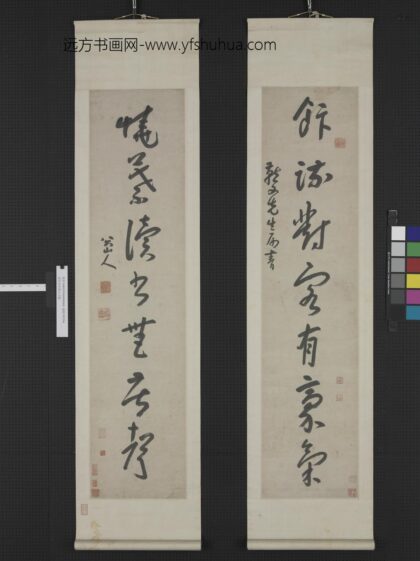 远方书画网-www.yfshuhua.com
飯疏對客有豪氣
先生属書
燒葉讀書無苦聲
八大山人